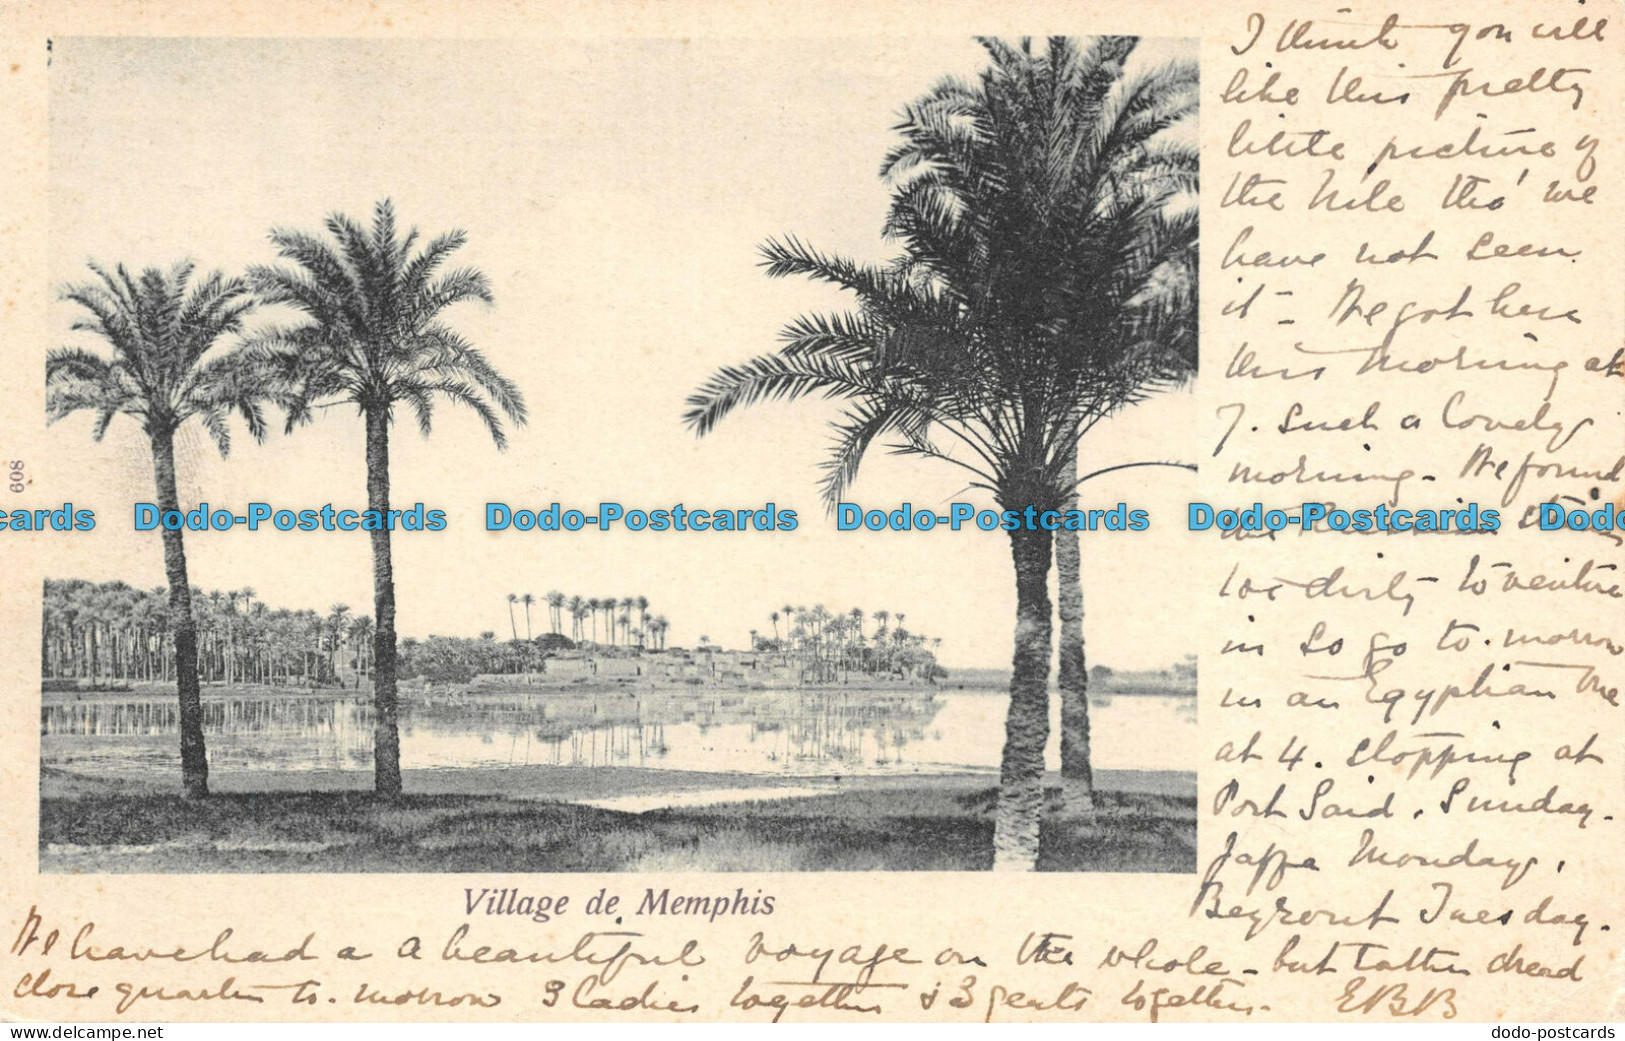 I think you will
like this pretty
little picture of
the Nile tho' we
have not seen
it - We got here
this morning at
7. Such a lovely
morning - We found
the Russian
too dirty to venture
in so go to-morrow
in an Egyptian one
at 4. stopping at
Port Said. Sunday.
Jaffa Monday.
Beyrout Tuesday.
608
Dodo-Postcards Dodo-Postcards Dodo-Postcards Dodo-Postcards
Village de Memphis
We have had a a beautiful voyage on the whole - but rather dread
close quarters to-morrow 3 ladies together & 3 gents together. EBB
delcampe.net
dodo-postcards